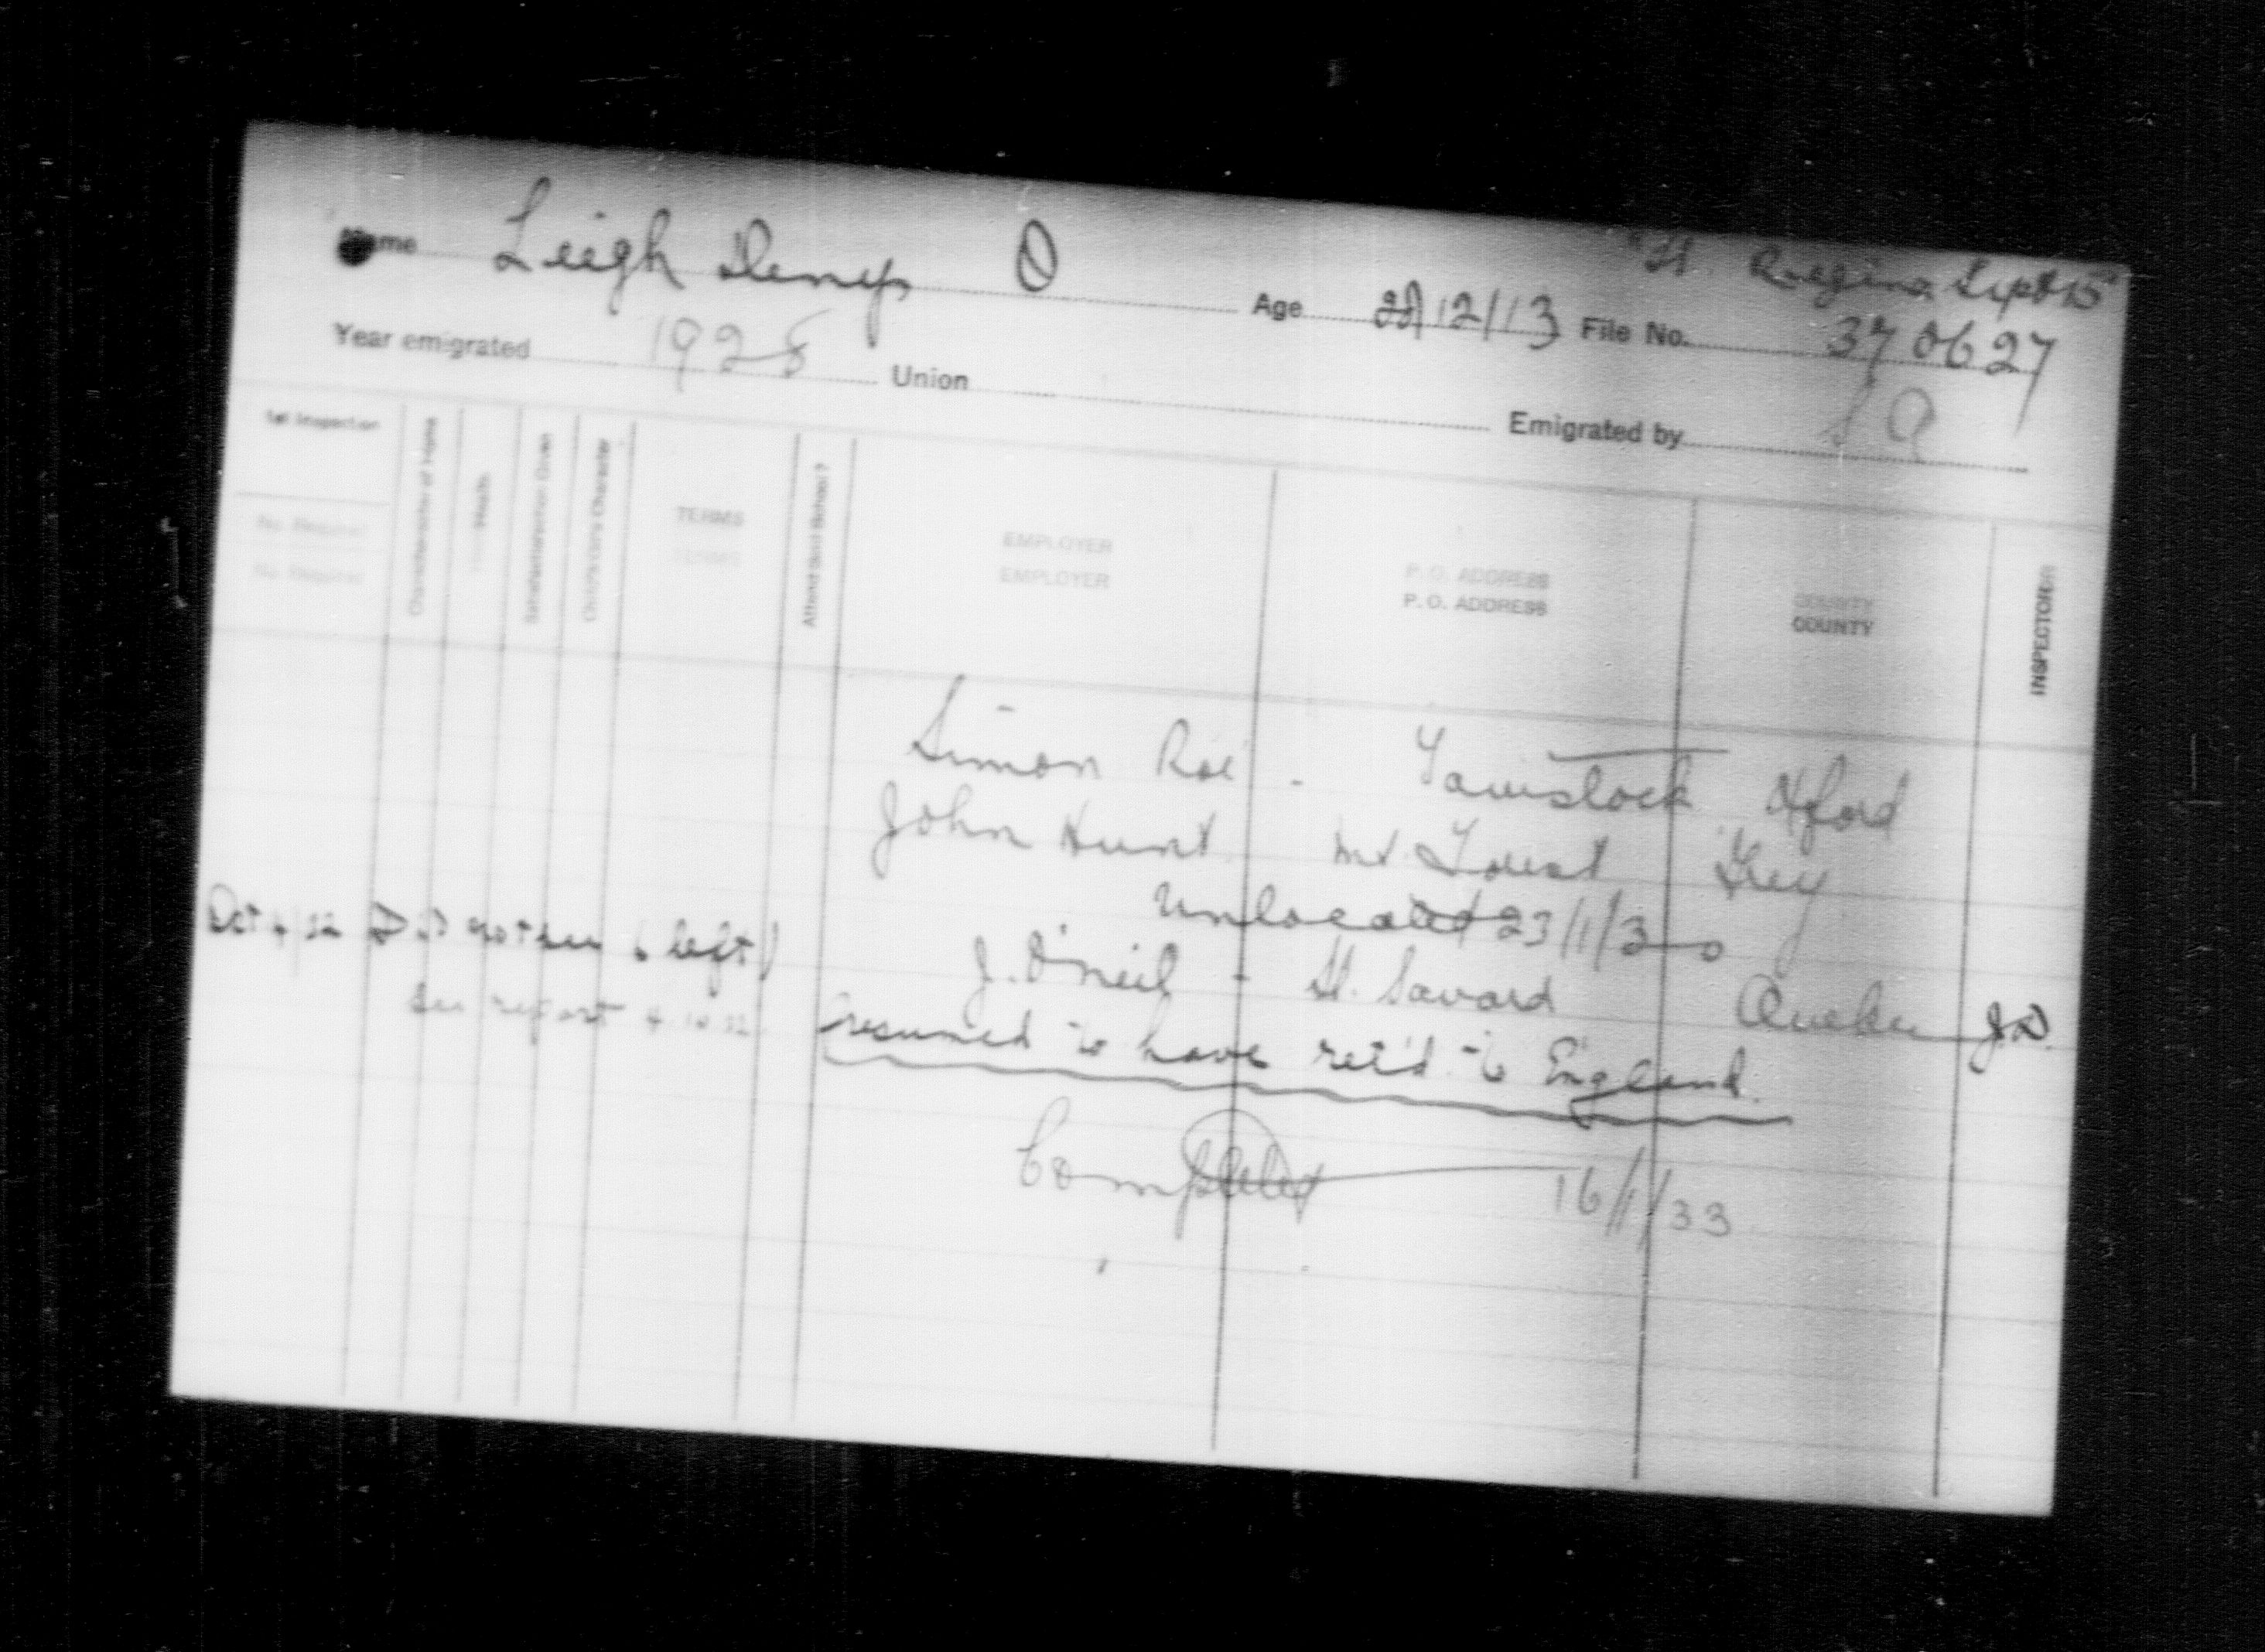 Regina Sept 15
Name Leigh Denys Age 28/12/13 File No. 370627
Year emigrated 1928 Union Emigrated by S A
1st Inspection
No Required
No Required
Health
TERMS
TERMS
Attend Sch'l School?
EMPLOYER
EMPLOYER
P. O. ADDRESS
P. O. ADDRESS
COUNTY
COUNTY
INSPECTOR
Simon Roe - Tavistock Oxford
John Hunt Mt Forest Grey
Unlocated 23/1/30
Oct 4/32 Did not see (left) J. O'Neil - St. Savard Quebec J.D.
See report 4.10.32 Presumed to have ret'd to England.
Completed 16/1/33